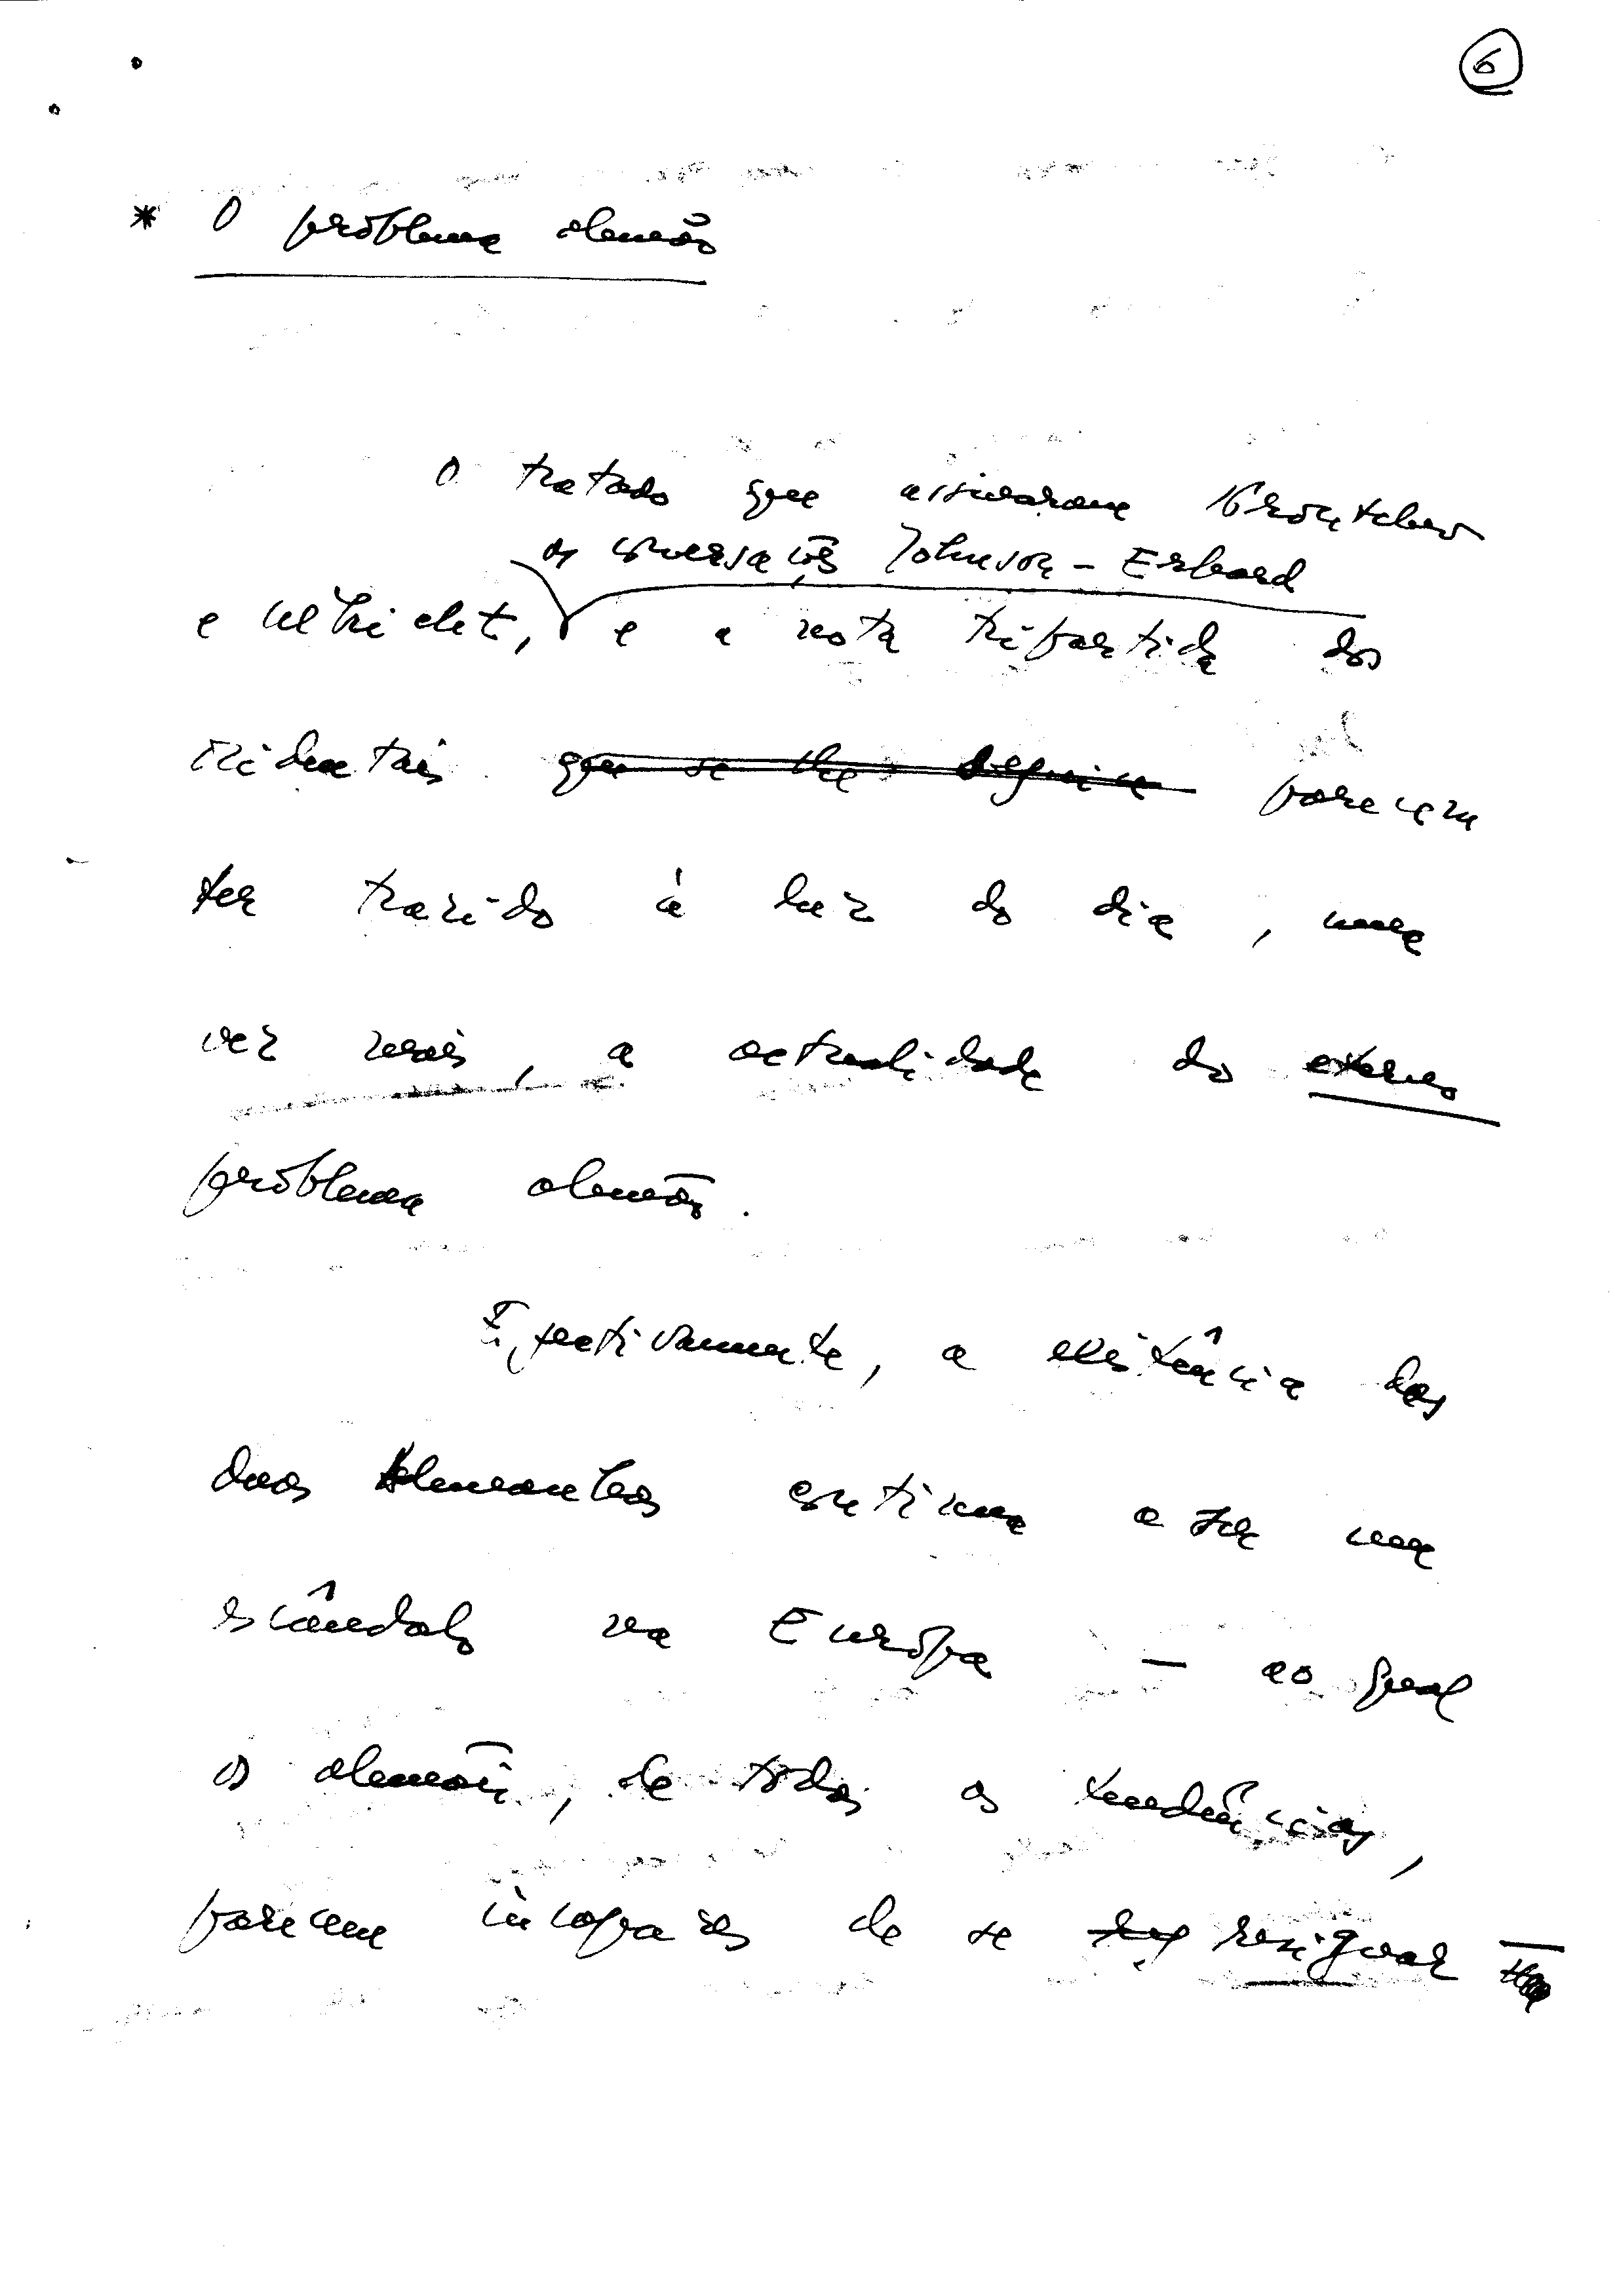 6
* O problema alemão
O tratado que assinaram Kroutchev
as conversações Johnson - Erhard
e Ulbricht, e a nota tripartida dos
ocidentais que se lhe seguiu parecem
ter trazido à luz do dia, uma
vez mais, a actualidade do eterno
problema alemão.
Efectivamente, a existência das
duas Alemanhas continua a ser um
escândalo na Europa — ao qual
os alemães, de todas as tendências,
parecem incapazes de se resignar